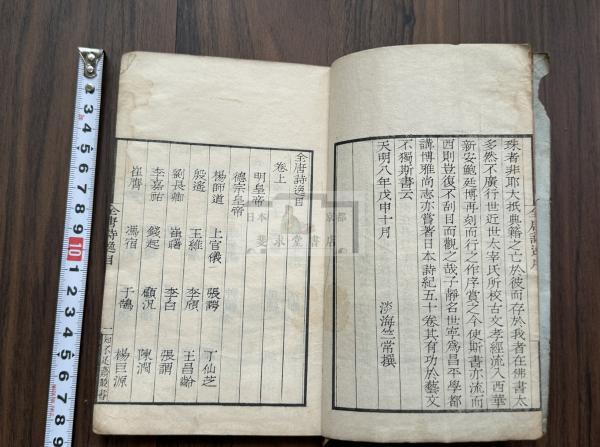 珠者非耶大抵典籍之亡於彼而存於我者在佛書太
多然不廣行世近世太宰氏所校古文孝經流入西華
新安鮑廷博再刻而行之作序賞之今使斯書亦流而
西則豈復不刮目而觀之哉子靜名世寧爲昌平學都
講博雅尚志亦嘗著日本詩紀五十卷其有功於藝文
不獨斯書云
天明八年戊申十月
淡海竺常撰
全唐詩逸目
卷上
明皇帝
德宗皇帝
楊師道 上官儀 張諤 丁仙芝
殷遙 王維 李頎 王昌齡
劉長卿 崔曙 李白 張謂
李嘉祐 錢起 顧況 陳潤
崔膺 馮宿 于鵠 楊巨源
全唐詩逸目
一
知不足齋叢書
日本 京都
斐求堂書店
3
4
5
6
7
8
9
10
1
2
3
4
5
6
7
8
9